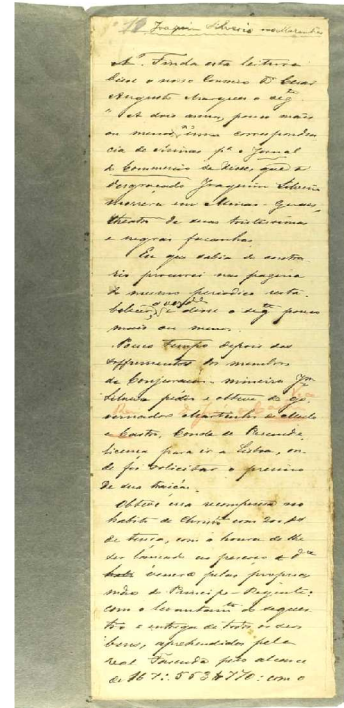 Joaquim Silverio no Maranhão
Sr. Finda esta leitura
disse o nosso Consocio Dr Cesar
Augusto Marques o segte
"Ha dois mezes, pouco mais
ou menos, uma corresponden
cia de Minas pa o Jornal
do Commercio disse que o
desgraçado Joaquim Silverio
morrera em Minas-Geraes,
theatro de suas tristissimas
e negras façanhas.
Eu que sabia do contra
rio procurei nas paginas
do mesmo periodico resta
belecer, e disse o segte pouco
mais ou menos.
Pouco tempo depois dos
soffrimentos dos membros
da Conjuração mineira Jm
Silverio pediu e obteve do go
vernador de Mello
e Castro, Conde de Resende,
licença para ir a Lisboa, on
de foi solicitar o premio
de sua traição.
Obteve essa recompensa no
habito de Christo com 200,000
de tença, com a honra de lhe
ser lançado ao pescoço
pelas proprias
mãos do Principe-Regente:
com o levantamto do seques
tro e entrega de todos os seus
bens, aprehendidos pela
real Fazenda pelo alcance
de 167:553 770: com o